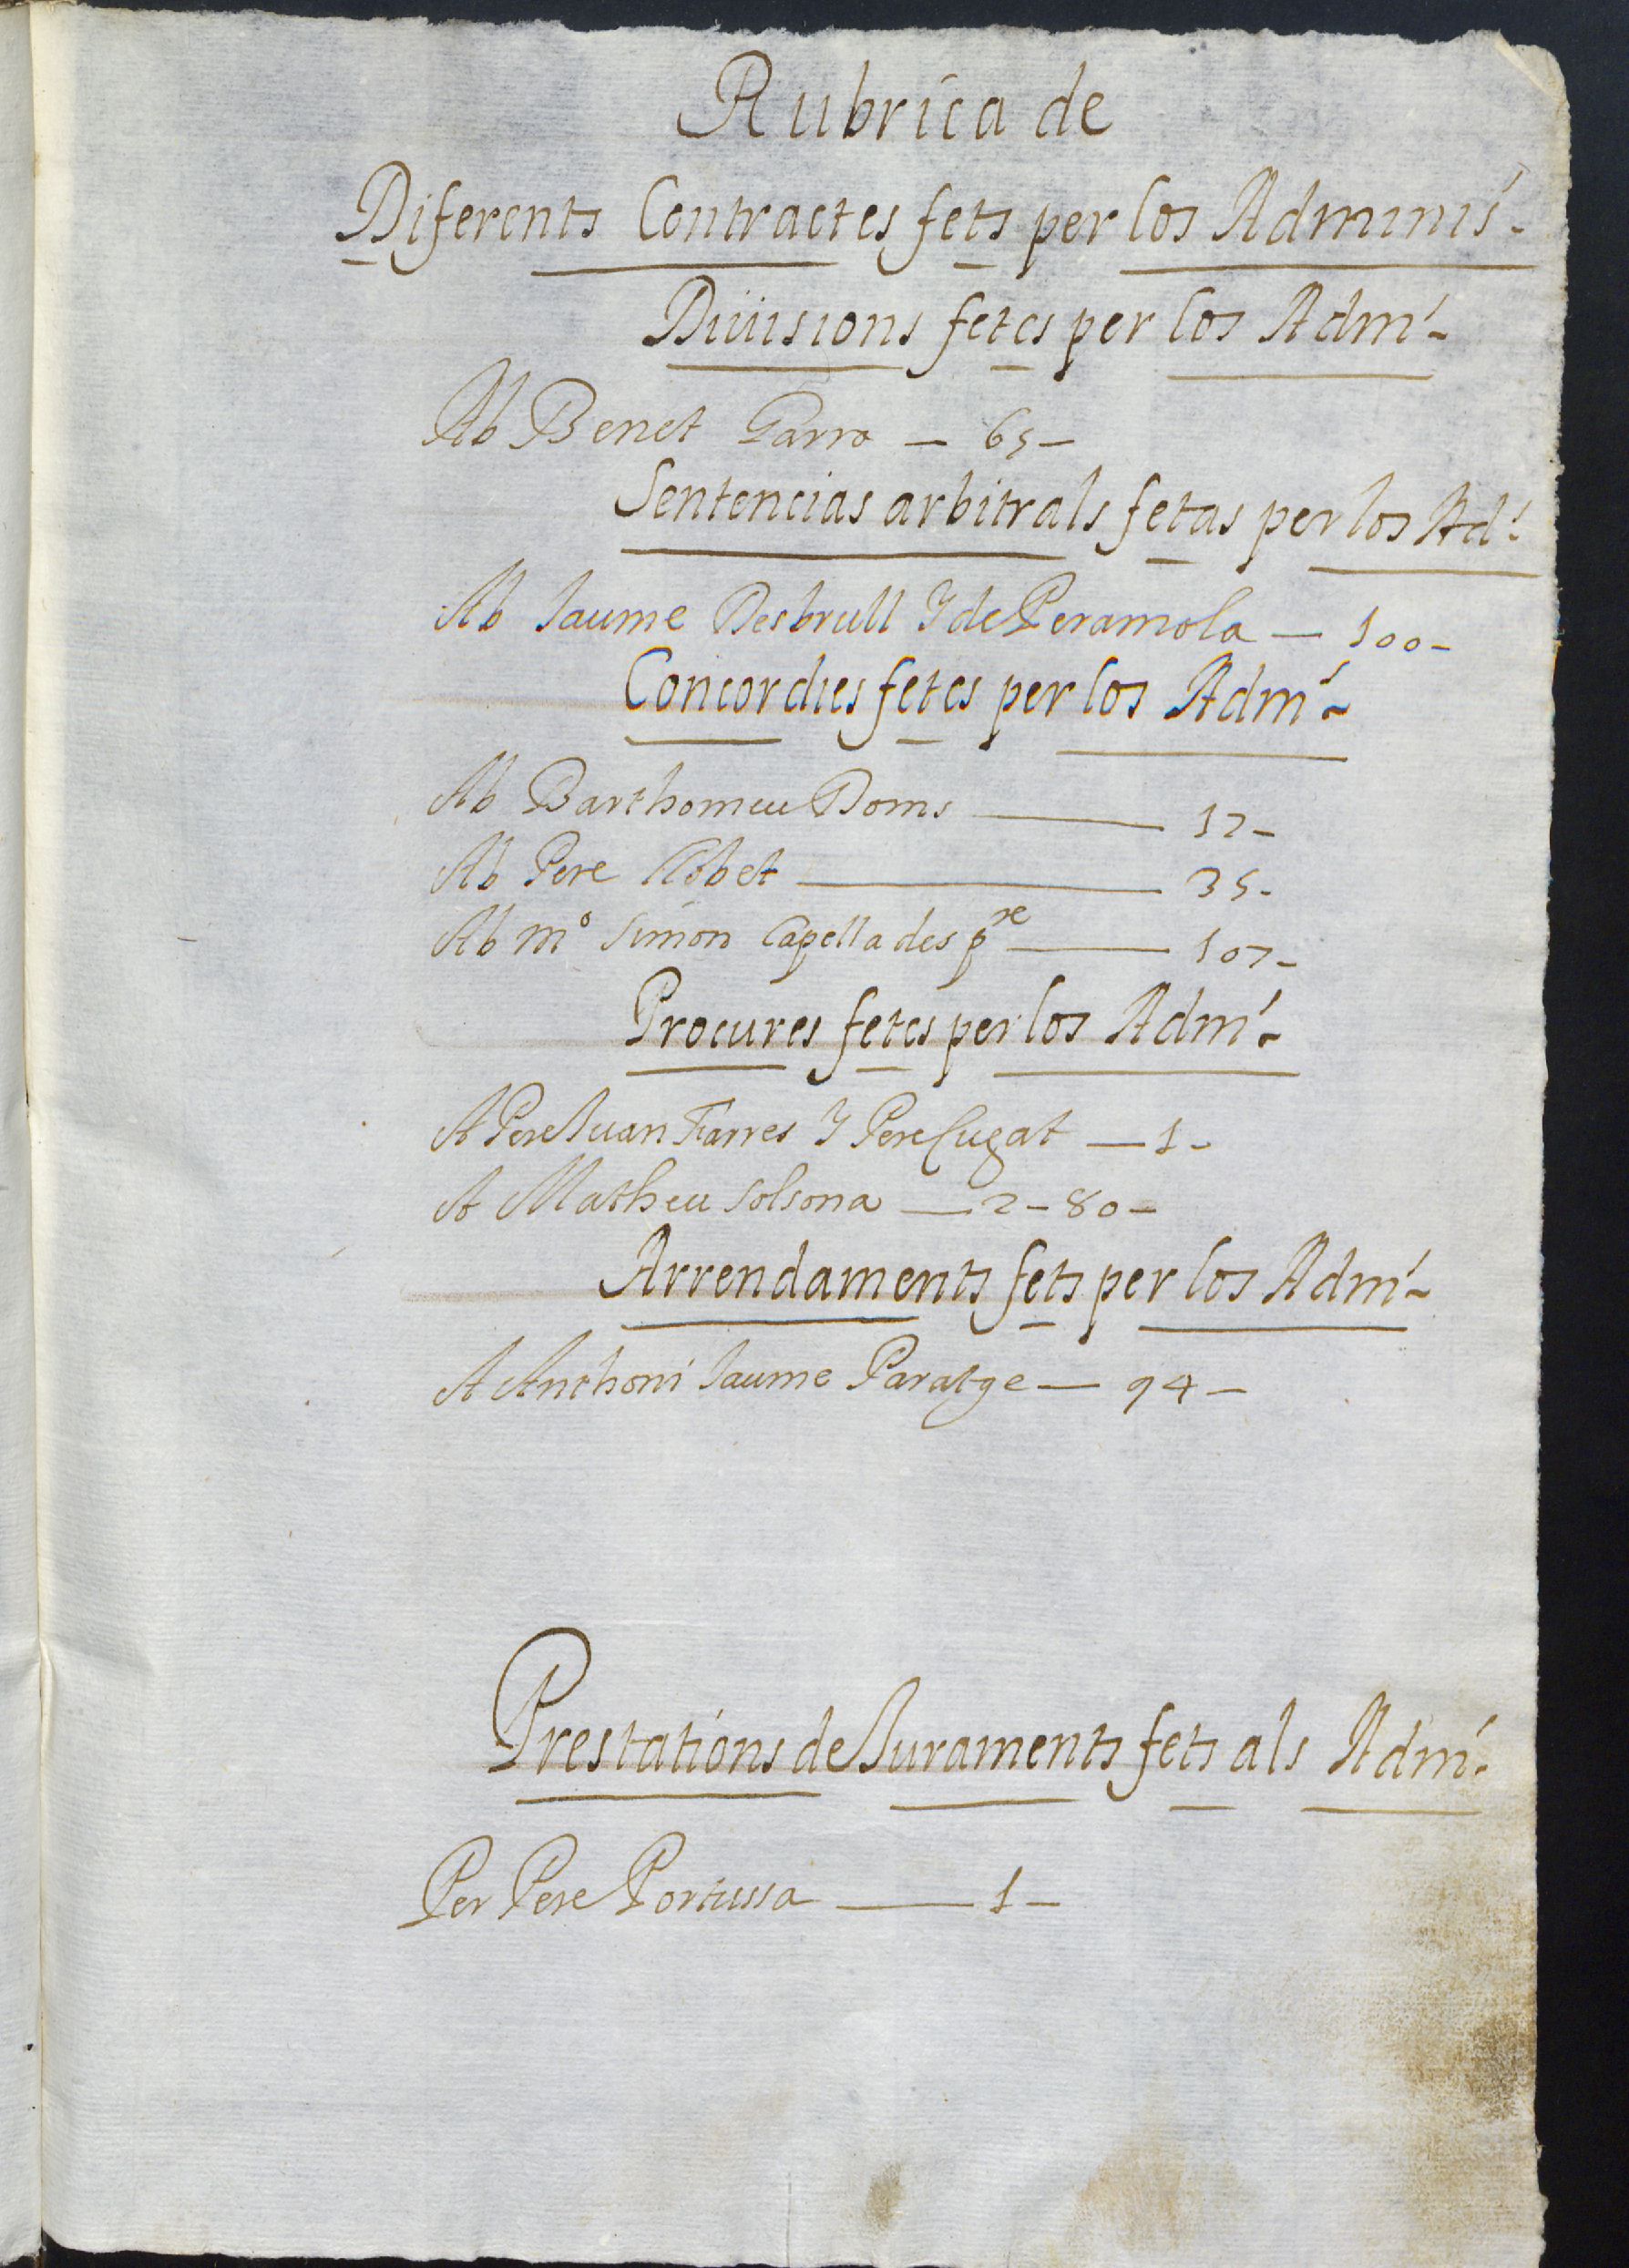 Rubrica de
Diferents Contractes fets per los Adminis.
Diuisions fetes per los Adm.
Ab Benet Parra — 65 —
Sentencias arbitrals fetas per los Ad.
Ab Jaume Desbrull Y de Peramola — 100 -
Concordies fetes per los Adm.
Ab Barthomeu Doms — 12 -
Ab Pere — 35 -
Ab mº Simon Capellades pre — 107 -
Procures fetes per los Adm.
A Pere Juan Farres Y Pere Cugat — 1 -
A Matheu Solsona — 2 - 80 -
Arrendaments fets per los Adm.
A Anthoni Jaume Paratge — 94 -
Prestations de Juraments fets als Adm.
Per Pere Portussa — 1 -